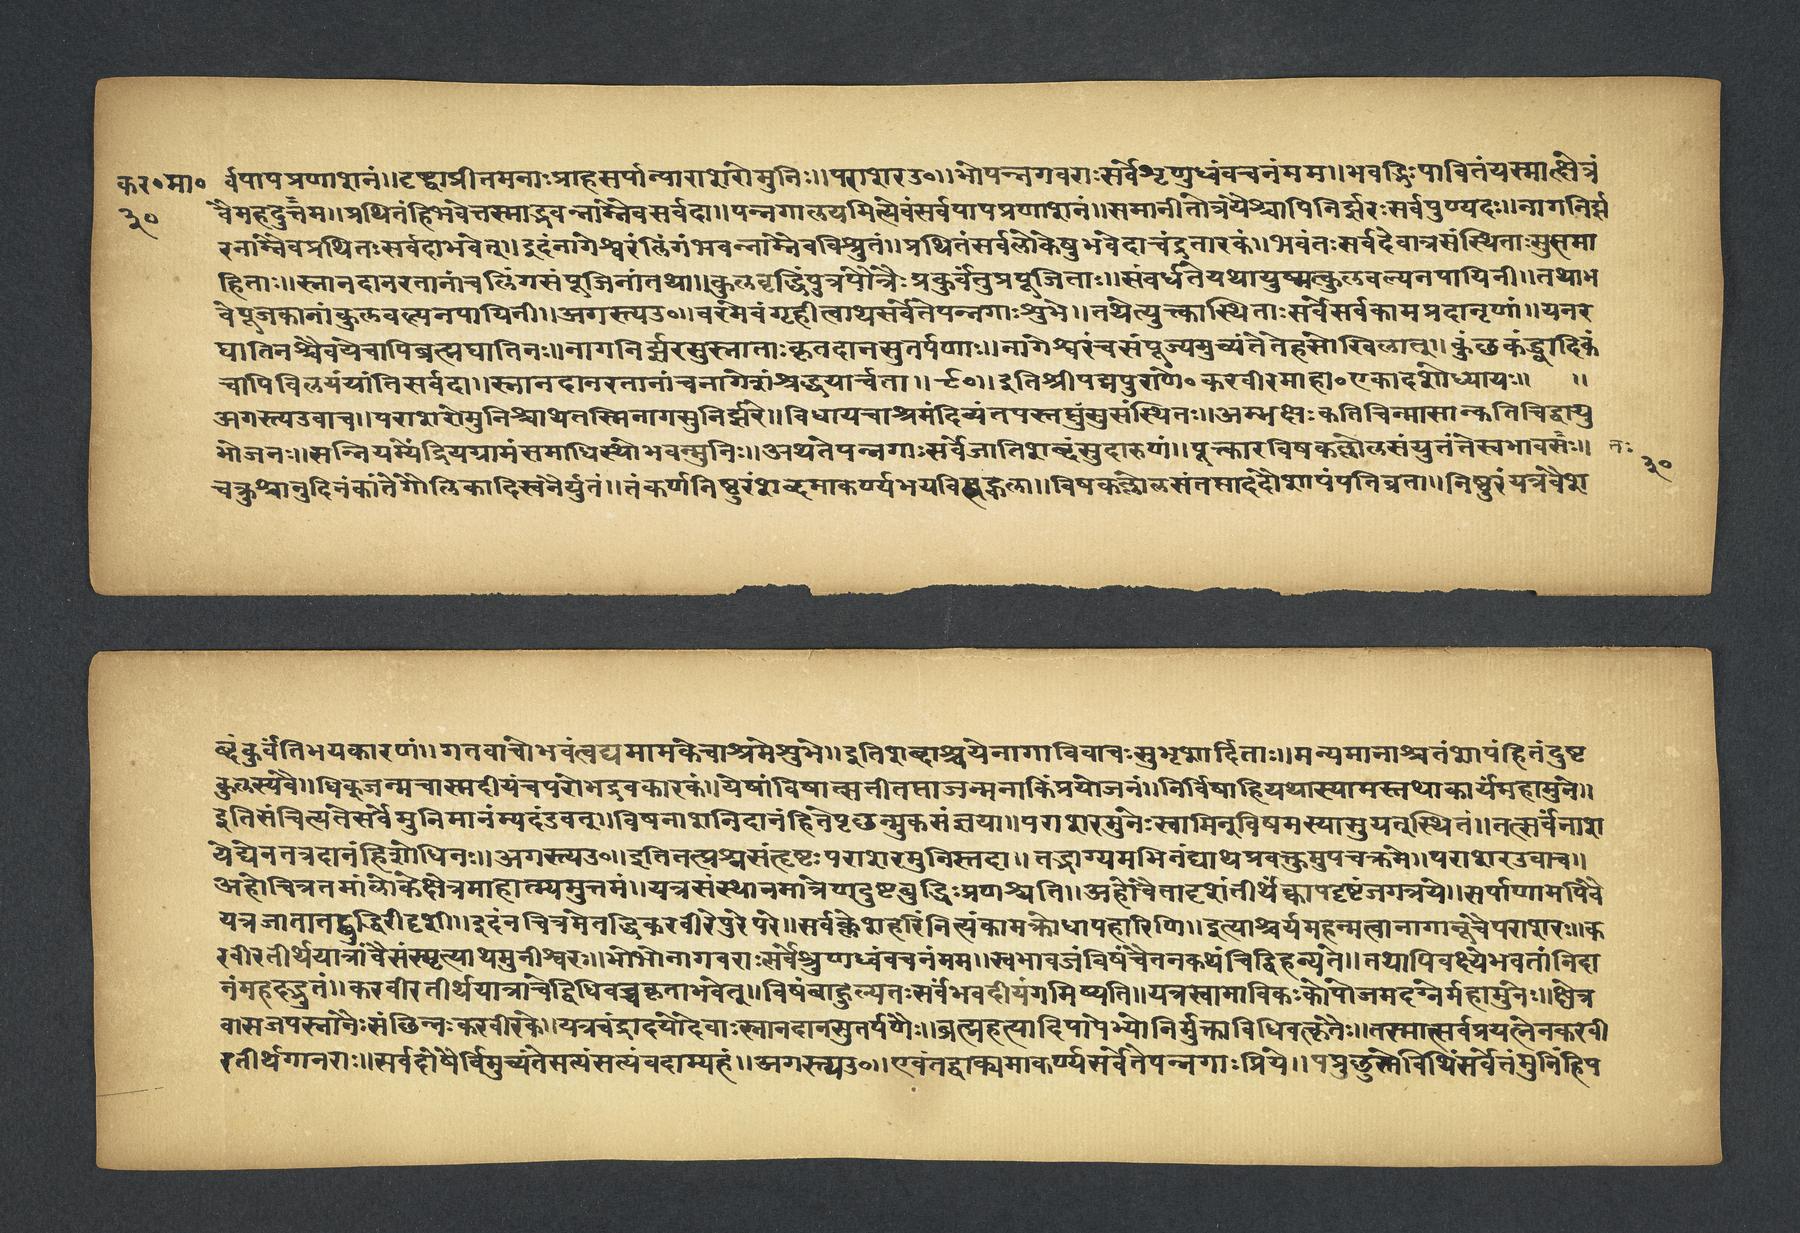 कर॰मा॰ र्वपापप्रणाशनं॥दृष्ट्वाप्रीतमनाःप्राहसर्पान्पाराशरोमुनिः॥पराशरउ०॥भोपन्नगवराःसर्वेशृणुध्वंवचनंमम॥भवद्भिःपावितंयस्मात्क्षेत्रं
३० वैमहदुत्तमम॥प्रथितंहिभवेत्तस्माद्भवन्नाम्नैवसर्वदा॥पन्नगालयमित्येवंसर्वपापप्रणाशनं॥समानीतोत्रयैश्चापिनिर्झरःसर्वपुण्यदः॥नागनिर्झ
रनाम्नैवप्रथितःसर्वदाभवेत्॥इदंनागेश्वरंलिंगंभवन्नाम्नैवविश्रुतं॥प्रथितंसर्वलोकेषुभवेदाचंद्रतारकं॥भवंतःसर्वदैवात्रसंस्थिताःसुसमा
हिताः॥स्नानदानरतानांचलिंगसंपूजिनांतथा॥कुलवृद्धिंपुत्रपौत्रैःप्रकुर्वंतुप्रपूजिताः॥संवर्धतेयथायुष्मत्कुलवल्यनपायिनी॥तथाभ
वेपूजकानांकुलवल्यनपायिनी॥अगस्त्यउ०॥वरमेवंगृहीत्वाथसर्वेतेपन्नगाःशुभे॥तथेत्युक्त्कास्थिताःसर्वेसर्वकामप्रदानृणां॥येनर
घातिनश्चैवयेचापिब्रह्मघातिनः॥नागनिर्झरसुस्नाताःकृतदानसुतर्पणाः॥नागेश्वरंचसंपूज्यमुच्यंतेतेहसोखिलात्॥कुंछकंड्वादिकं
चापिविलयंयांतिसर्वदा॥स्नानदानरतानांचनागेत्रांश्चद्धयार्चता॥९०॥इतिश्रीपद्मपुराणे॰करवीरमाहा॰एकादशोध्यायः॥ ॥
अगस्त्यउवाच॥पराशरोमुनिश्चाथतस्मिनागसुनिर्झरे॥विधायचाश्रमंदिव्यंतपस्तप्तुंसुसंस्थितः॥अम्भक्षःकतिचिन्मासान्कतिचिद्वायु
भोजनः॥सन्नियम्येंद्रियग्रामंसमाधिस्थोभवन्मुनिः॥अथतेपन्नगाःसर्वेजातिशब्दंसुदारुणं॥फूत्कारविषकल्लोलसंयुतंतेस्वभावतः॥ तः ३०
चक्रुश्चानुदिनंकांतेगोलिकादिस्वनैर्युतं॥तंकर्णनिष्ठुरंशब्दमाकर्ण्यभयविह्वला॥विषकल्लोलसंतप्ताददौशापंपतिव्रता॥निष्ठुरंयत्रवैश
ब्दंकुर्वंतिभयकारणं॥गतवाचोभवंत्वद्यमामकेचाश्रमेशुभे॥इतिशब्दाश्चयेनागाविवाचःसुभृशार्दिताः॥मन्यमानाश्चतंशापंहितंदुष्ट
कुलस्यवै॥धिक्जन्मचास्मदीयंचपरोभद्रवकारकं॥येषांविषात्सतीतप्ताजन्मनाकिंप्रयोजनं॥निर्विषाहियथास्यामस्तथाकार्यंमहामुने॥
इतिसंचित्यतेसर्वेमुनिमानंम्यदंउवत्॥विषनाशनिदानंहितेपृछन्मुक्तसंज्ञया॥पराशरमुनेःस्वामिन्विषमस्यासुयत्स्थितं॥तत्सर्वंनाश
येद्येनतत्रदानंहिशोधिनः॥अगस्त्यउ०॥इतितत्प्रश्नसंतृष्टःपराशरमुनिस्तदा॥तद्भाग्यमभिनंद्याथप्रवक्तुमुपचक्रमे॥पराशरउवाच॥
अहोचित्रतमांलोकेक्षेत्रमाहात्म्यमुत्तमं॥यत्रसंस्थानमात्रेणदुष्टबुद्धिःप्रणश्यति॥अहोचैतादृशंतीर्थंक्वापदृष्टंजगत्रये॥सर्पाणामपिवै
यत्रजातातद्बुद्धिरीदृशी॥इदंनचित्रमेतद्धिकरवीरेपुरेपरे॥सर्वक्लेशहरिंनित्यंकामक्रोधापहारिणि॥इत्याश्चर्यमहन्मत्वानागानूचेपराशरः॥क
रवीरतीर्थयात्रांवैसंस्मृत्याथमुनीश्वरः॥भोभोनागवराःसर्वेश्रुणध्वंवचनंमम॥स्वभावजंविषंचैतनकथंचिद्विहन्यते॥तथापिवक्ष्येभवतांनिदा
नंमहदद्भुतं॥करवीरतीर्थयात्राचेद्विधिवच्चकृताभवेत्॥विषंबाहुल्यतःसर्वंभवदीयंगमिष्यति॥यत्रस्वाभाविकःकोपोजमदग्नेर्महामुनेः॥क्षेत्र
वासजपस्नानैःसंछिन्नःकरवीरके॥यत्रचंद्रादयोदेवाःस्नानदानसुतर्पणैः॥ब्रह्महत्यादिपापेभ्योनिर्मुक्ताविधिवत्कृतैः॥तस्मात्सर्वप्रयत्नेनकरवी
रतीर्थगानराः॥सर्वदोषैर्विमुच्यंतेसत्यंसत्यंवदाम्यहं॥अगस्त्यउ०॥एवंतद्वाक्यमाकर्ण्यसर्वेतेपन्नगाःप्रिये॥पप्रुछुस्तेविधिंसर्वेतंमुनिंहिप